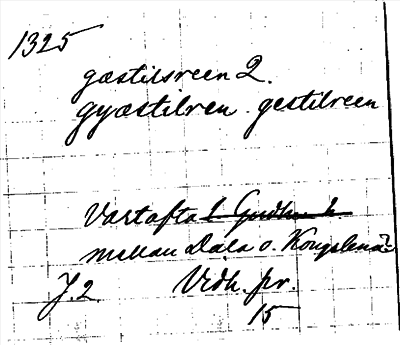 1325
gæstilsreen 2.
gyæstilren. gestilreen
Vartofta
mellan Dala o. Kongslena?
J. 2. Vidh. pr.
15